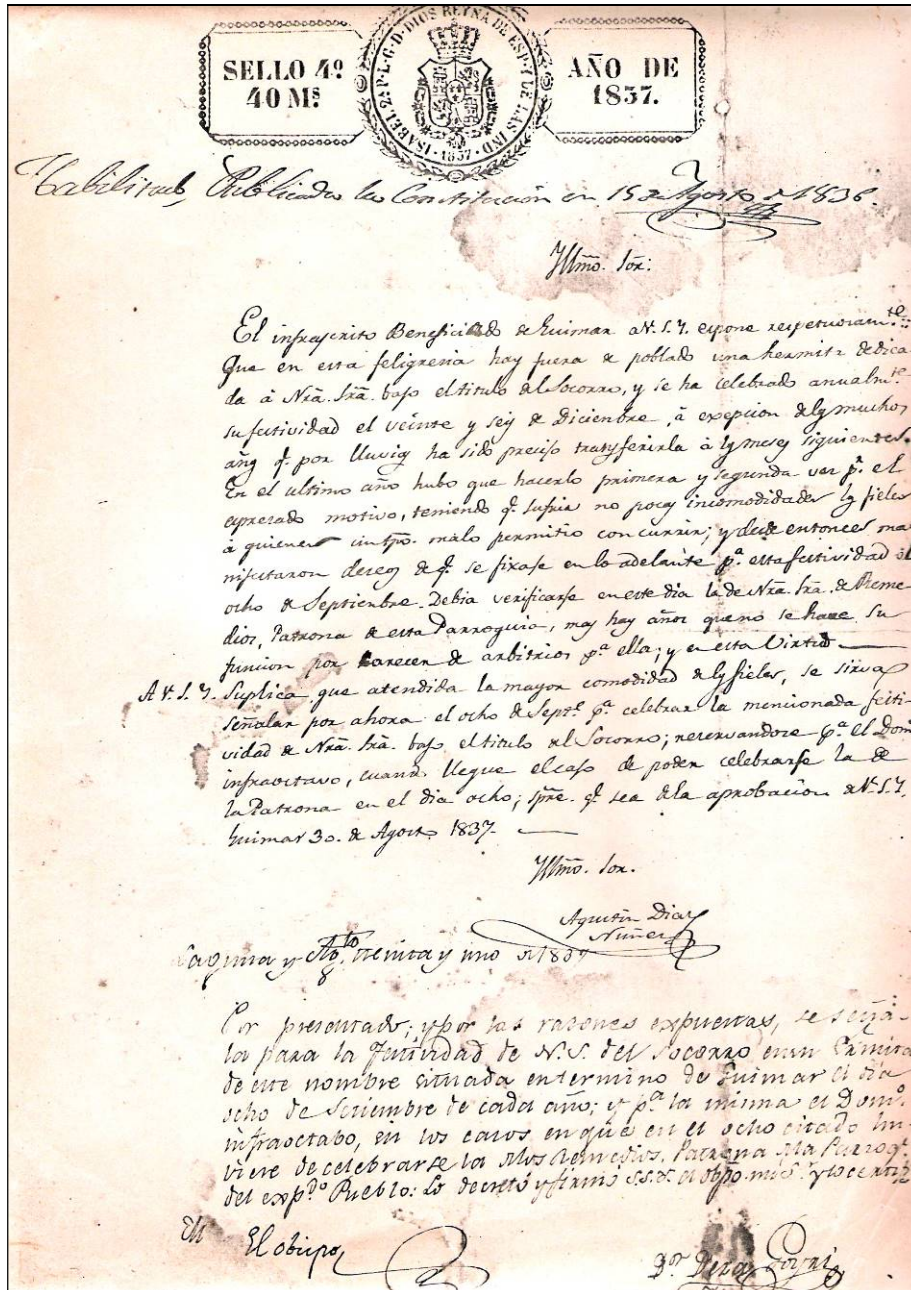 SELLO 4º
40 Mˢ
ISABEL 2ª P. L. G. D. DIOS REYNA DE ESP. Y DE LAS IND
·1837·
AÑO DE
1837.
Habilitado, Publicada la Constitución en 15 de Agosto de 1836.
Yllmo. Sor:
El infrascrito Beneficiado de Guimar a V. S. Y. expone respetuosamte.:
Que en esta feligresia hay fuera de poblado una hermita dedica
da à Nrã. Srã. bajo el titulo del Socorro, y se ha celebrado anualmte.
su festividad el veinte y seis de Diciembre, à exepcion de los muchos
años q. por lluvias ha sido preciso trasferirla à los meses siguientes.
En el ultimo año hubo que hacerlo primera y segunda vez pª. el
expresado motivo, teniendo q. sufrir no pocas incomodidades los fieles
à quienes un tpo. malo permitio concurrir; y desde entonces ma
nifestaron deseos de q. se fixase en lo adelante pª. esta festividad el
ocho de Septiembre. Debia verificarse en este dia la de Nra. Sra. de Reme
dios, Patrona de esta Parroquia, mas hay años que no se hace su
funcion por carecer de arbitrios pª ella; y en esta Virtud
A V. S. Y. Suplica que atendida la mayor comodidad de los fieles, se sirva
señalar por ahora el ocho de Septe. pª. celebrar la mencionada festi-
vidad de Nrã. Srã. bajo el titulo del Socorro; reservandose pª. el Domº
infraoctavo, cuando llegue el caso de poder celebrarse la de
la Patrona en el dia ocho; spre. q. sea de la aprobacion de V. S. Y.
Guimar 30. de Agosto 1837.
Yllmo. Sor.
Agustin Diaz
Nuñez
Laguna y Agto. treinta y uno de 1837
Por presentado; y por las razones expuestas, se seña-
la para la Festividad de N. S. del Socorro en su Ermita
de este nombre situada en termino de Guimar el dia
ocho de Setiembre de cada año; y pª. la misma el Domº.
infraoctabo, en los casos en que en el ocho citado hu-
viere de celebrarse la de los Remedios, Patrona de la Parroqª.
del expdº Pueblo: Lo decretó y firmó S.S.Y. el obpo. mi Sr. y lo certifº
El obispo,